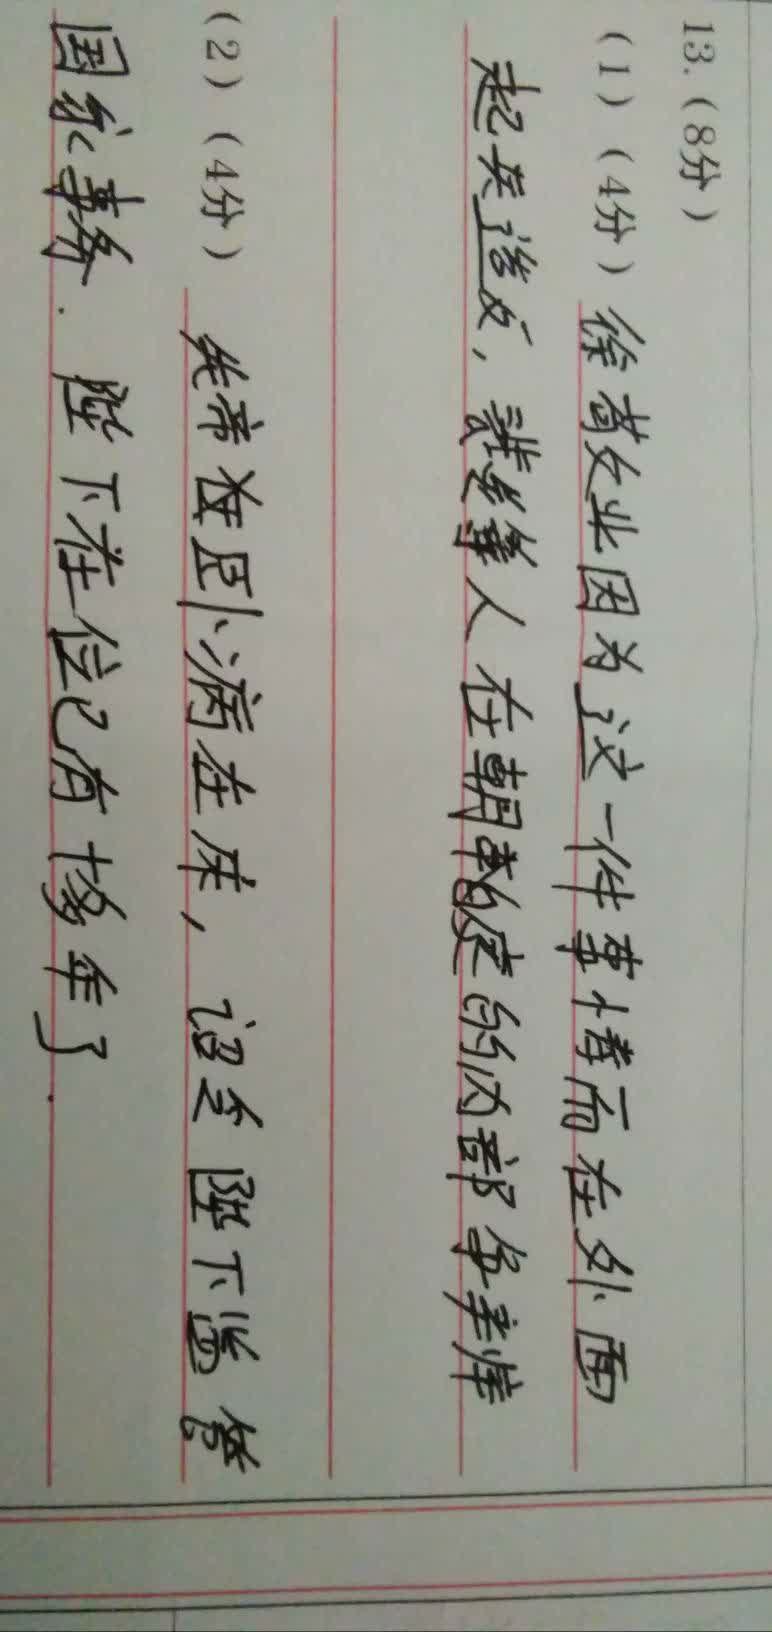 13.(8分)
(1)(4分)徐敬业因为这一件事情而在外面
起兵造反,裴炎等人在朝廷的内部争辩
(2)(4分)先帝在卧病在床,诏令陛下监管
国家事务.陛下在位已有十多年了.